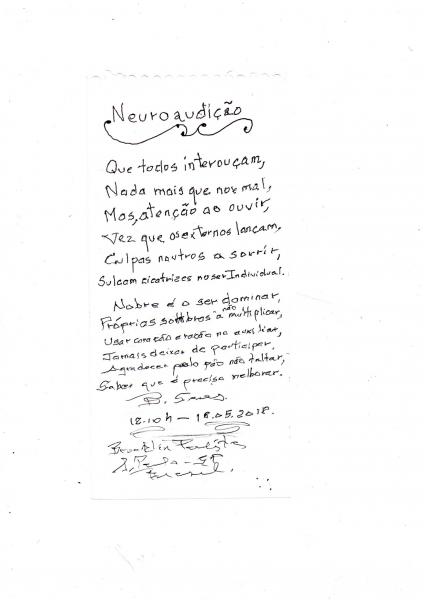 Neuroaudição
Que todos interouçam,
Nada mais que normal,
Mas, atenção ao ouvir,
Vez que os externos lançam,
Culpas noutros a sorrir,
Sulcam cicatrizes no ser Individual.
Nobre é o ser dominar,
Próprias sombras a não multiplicar,
Usar coração e razão no auxiliar,
Jamais deixar de participar,
Agradecer pelo pão não faltar,
Saber que é preciso melhorar.
B.
12:10h — 18.05.2018.
S. Paulo - SP
Brasil.